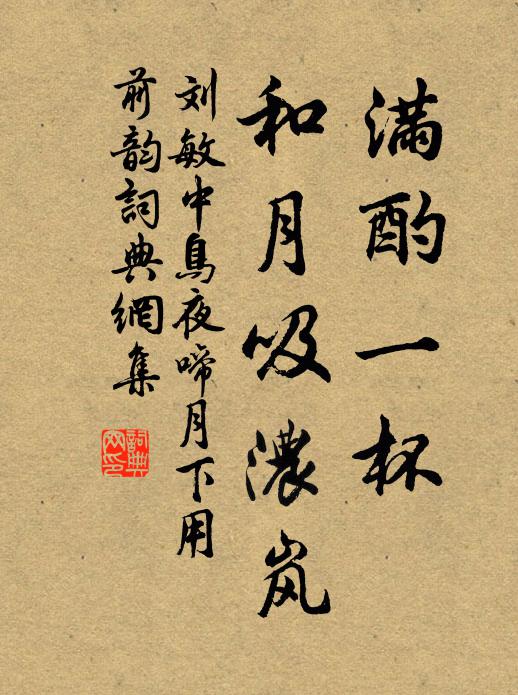 满酌一杯
和月吸浓岚
刘敏中鸟夜啼月下用
前韵词典網集
詞典網印